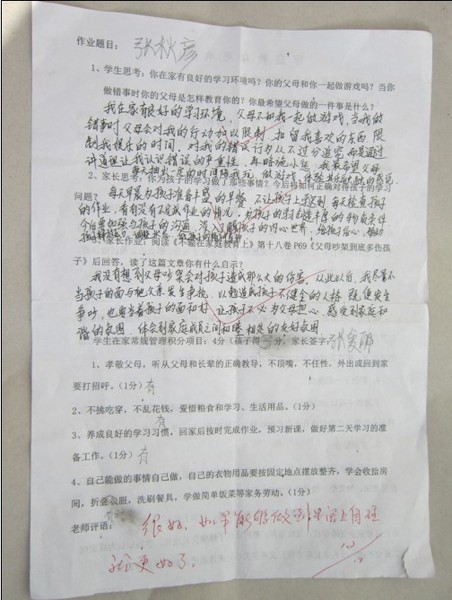 作业题目： 张秋彦
1、学生思考：你在家有良好的学习环境吗？你的父母和你一起做游戏吗？当你
做错事时你的父母是怎样教育你的？你最希望父母做的一件事是什么？
我在家有很好的学习环境，父母不和我一起做游戏，当我做
错事时，父母会对我的行动加以限制，扣留我喜欢的东西，限
制我娱乐的时间，对我的错误行为从不过分追究，而是通过
讲道理让我认识错误的严重性，再略施小惩，我最希望父母
每天抽出一定的时间陪我玩，做游戏，
2、家长思考：你为孩子的学习做了那些事情？今后将如何正确对待孩子的学习
问题？ 每天早晨为孩子准备丰盛的早餐，不让孩子上学迟到，每天检查孩子
的作业，看有没有不完成作业的情况，为孩子的
今后要加强与孩子的沟通，深入了解孩子的内心世界，给孩子信心，
《家长作业》阅读《不输在家庭教育上》第十八卷 P69《父母吵架到底多伤孩
子》后回答，读了这篇文章你有什么启示？
我没有想到父母吵架会对孩子造成那么大的伤害，从此以后，我尽量不
当孩子的面与他父亲发生争执，以免造成孩子不健全的人格，既使发生
争吵，也要当着孩子的面和好，让孩子不必为父母担心，感受到家庭和
谐的氛围，体会到家庭成员之间和睦相处的良好氛围
学生在家常规管理积分项目：4分（孩子得 分）家长签字：张爱丽
1、孝敬父母，听从父母和长辈的正确教导，不顶嘴，不任性，外出或回到家
要打招呼。（1分）有
2、不挑吃穿，不乱花钱，爱惜粮食和学习、生活用品。（1分）
有
3、养成良好的学习习惯，回家后按时完成作业，预习新课，做好第二天学习的准
备工作。（1分）有
4、自己能做的事情自己做，自己的衣物用品要按固定地点摆放整齐，学会收拾房
间，折叠衣服，洗刷餐具，学做简单饭菜等家务劳动。（1分）
老师评语： 很好，如果能够做到
就更好了